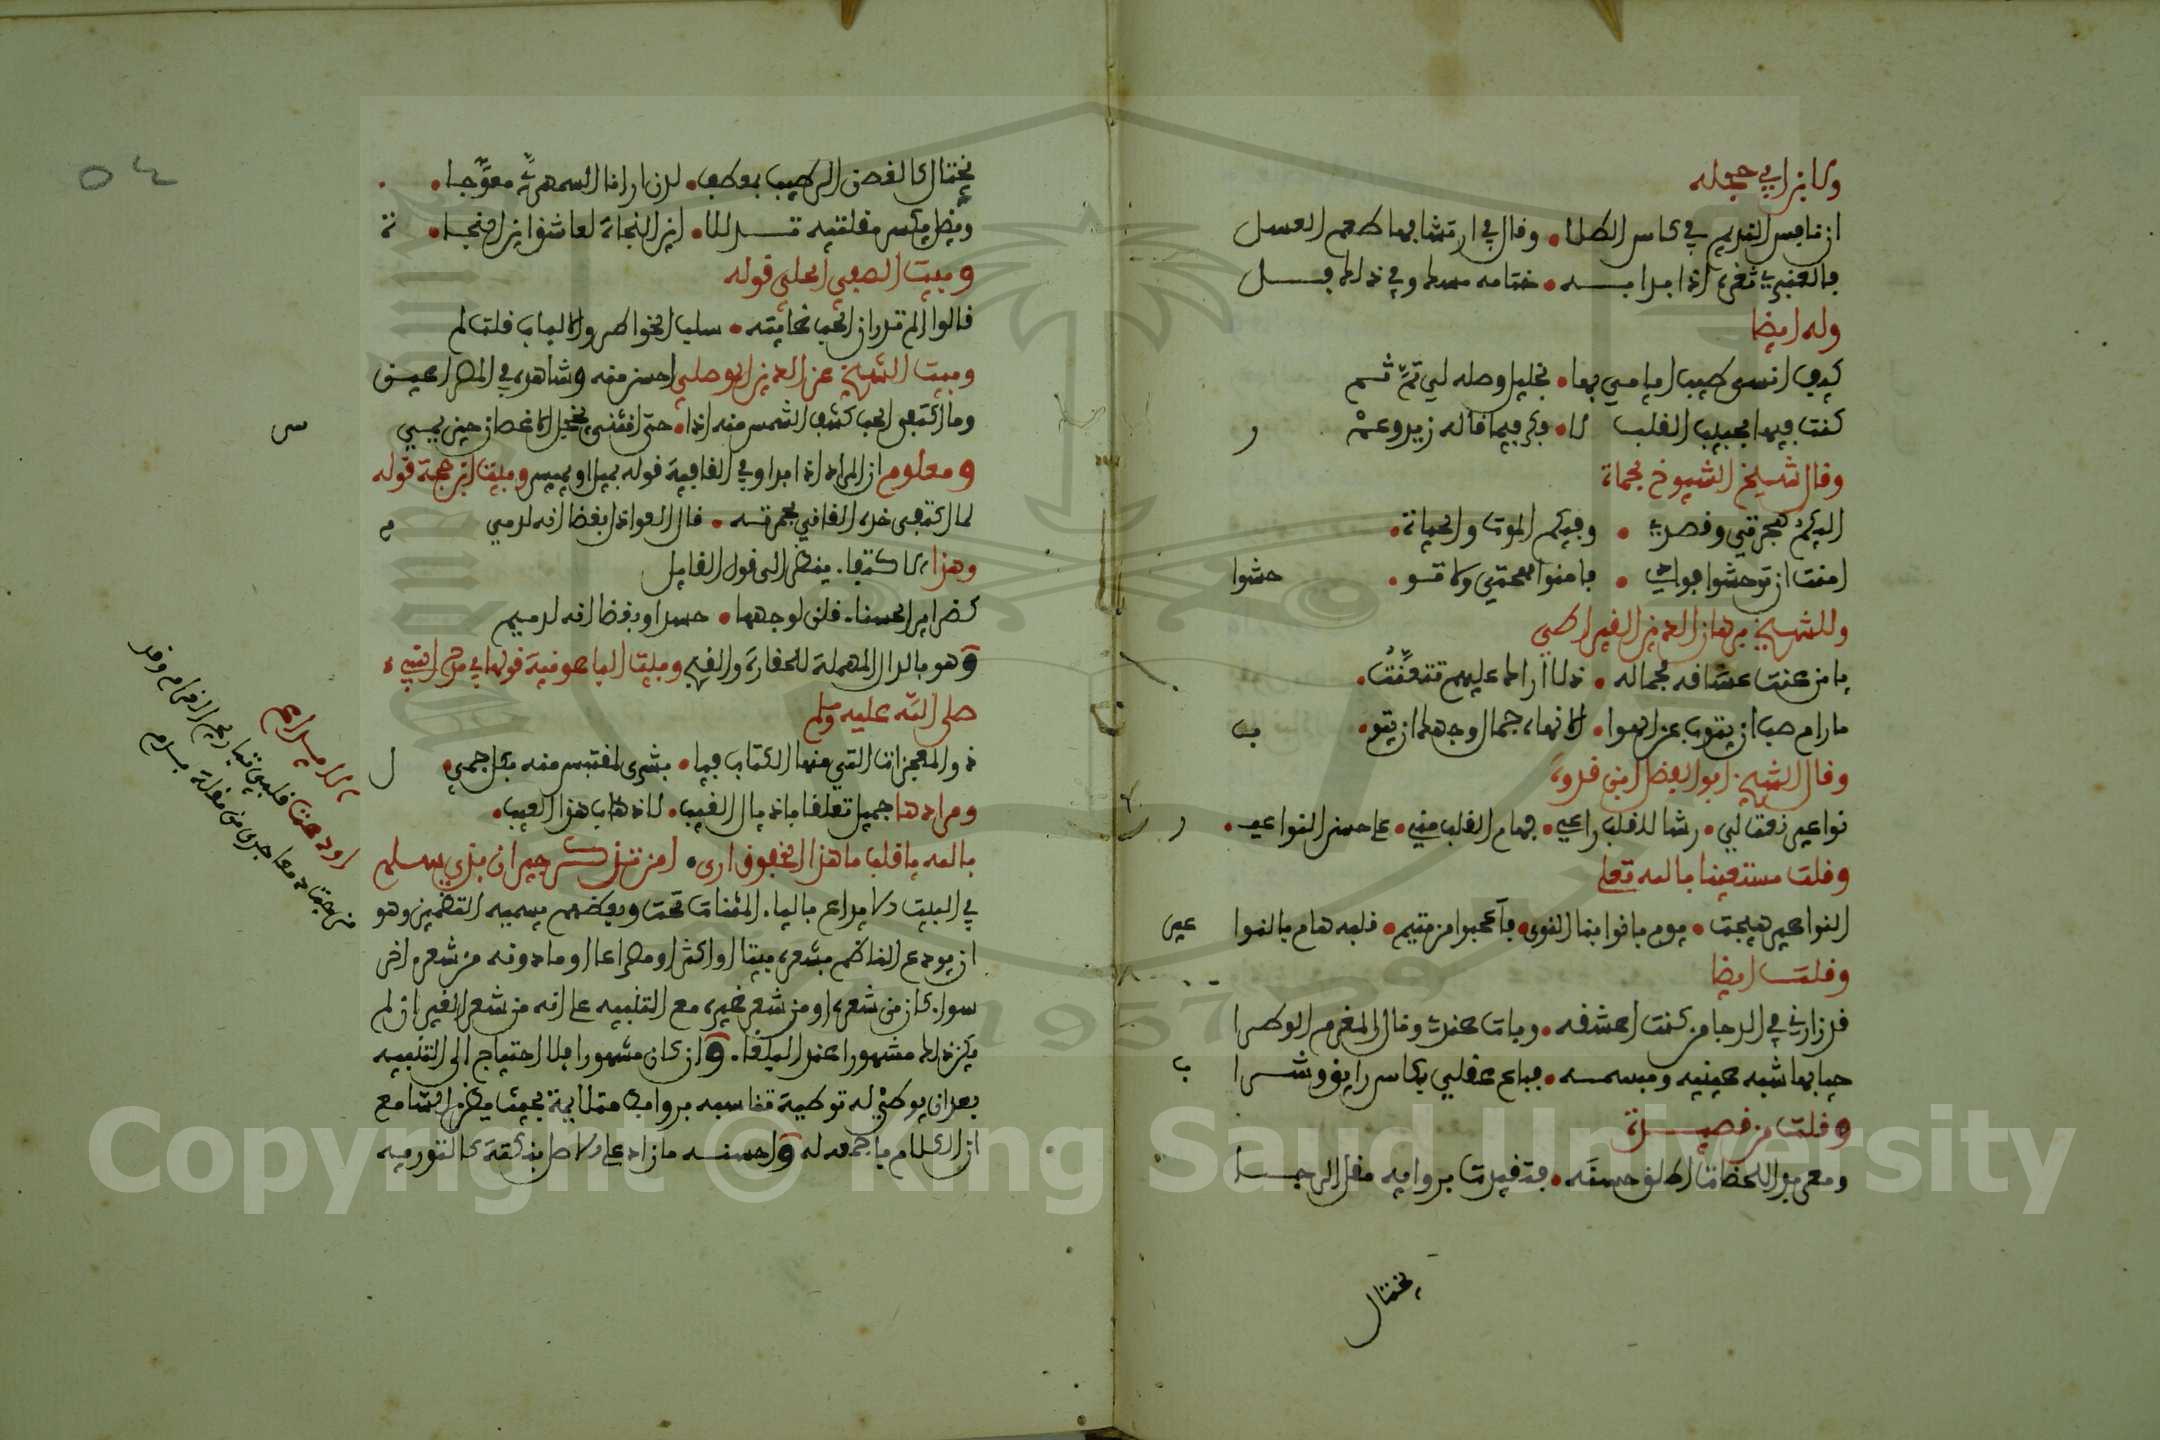 ولابن ابي حجلة
ان نافس النديم في كاس الطلا • وقال في ارتشافها طعم العسل
فالعنبري ثغره اذا بدا به • ختامه مسك وفي ذلك فل
وله ايضا
كيف انسى طيب ايامي بها • بخليل وصله لي تم ثم
كنت فيها بحبيب القلب لا • فكر فيما قاله زيد وعمر و
وقال شيخ الشيوخ بحماة
اليكم هجرتي وقصدي • وفيكم الموت والحياة •
امنت ان توحشوا فوادي • فامنوا مهجتي ولا تو • حشوا
وللشيخ برهان الدين القيراطي
يا من عنت عشاقه لجماله • ذلا اراك عليهم تتعنت •
ما رام صب ان يتوب عن الهوا • لانهاه جمال وجهك ان يتو • ب
وقال الشيخ ابو الفضل ابن
نواعير نعت لي • رشا للقلب راعي • فهام القلب مني • على حسن النواعيـ • ر
وقلت مستعينا بالله تعلى
النواعير هيجت • يوم بانوا بنا النوى • فاعجبوا من متيم • قلبه هام بالنوا عير
وقلت ايضا
قد زارني في الدجا من كنت اعشقه • وبات عندي ونال المغرم الوطرا
حبابها شبه عينيه ومبسمه • فباع عقلي بكاس رايق وشرا ب
وقلت من قصيدة
ومعربد اللحظات اطلق حسنه • فتقيدت بروايه مقل الرجا
يختال
يختال كالغصن الرطيب بعطفه • لدن ارانا السمهرية معوجا •
ويظل يكسر مقلتيه تدللا • اين النجاة لعاشق اين المنجا • ة
وبيت الصفي الحلي قوله
قالوا الم تدر ان الحب غايته • سلب الخواطر والالباب قلت لم
وبيت الشيخ عز الدين الموصلي احسن منه وشاهده في المصراعين
وما اكتفى الحب كسف الشمس منه اذا • حتى انثنى يخجل الاغصان حين يميـ س
ومعلوم ان المراد اذا بدا وفي القافية قوله يميل او يميس وبيت ابن حجة قوله
لما اكتفى خده القاني بحمرته • قال العواذل بغضا انه لدمي م
وهذا الاكتفاء ينظر الى قول القايل
كضراير الحسناء قلن لوجهها • حسدا وبغضا انه لدميم
وهو بالدال المهملة للحقارة والقبح وبيت الباعونية قولها في مدح النبي
صلى الله عليه وسلم
ذو المعجزات التي منها الكتاب فيا • بشرى لمقتبس منه بكل جميـ ل
ومرادها جميل تعلقا باذيال الغيب • لا ذهاب هذا العيب •
بالله يا قلب ما هذا الخفوق ارى • امن تذكر جيران بذي سلم
في البيت الايداع بالياء المثناة تحت وبعضهم يسميه التضمين وهو
ان يودع الناظم بشعره بيتا او اكثر او مصراعا او ما دونه من شعر اخر
سواء كان من شعره او من شعر غيره مع التنبيه على انه من شعر الغير ان لم
يكن ذلك مشهورا عند البلغاء. وان كان مشهورا فلا احتياج الى التنبيه
بعد ان يوطئ له توطية تناسبه بروابط متلائمة بحيث يظن السامع
ان الكلام باجمعه له واحسنه ما زاد على الاصل بنكتة كالتورية
الايداع
اودعت قلبي تباريح الغرام وقد
مزجت دمعا جرى من مقلة بدم
٥٤
Copyright © King Saud University
1957